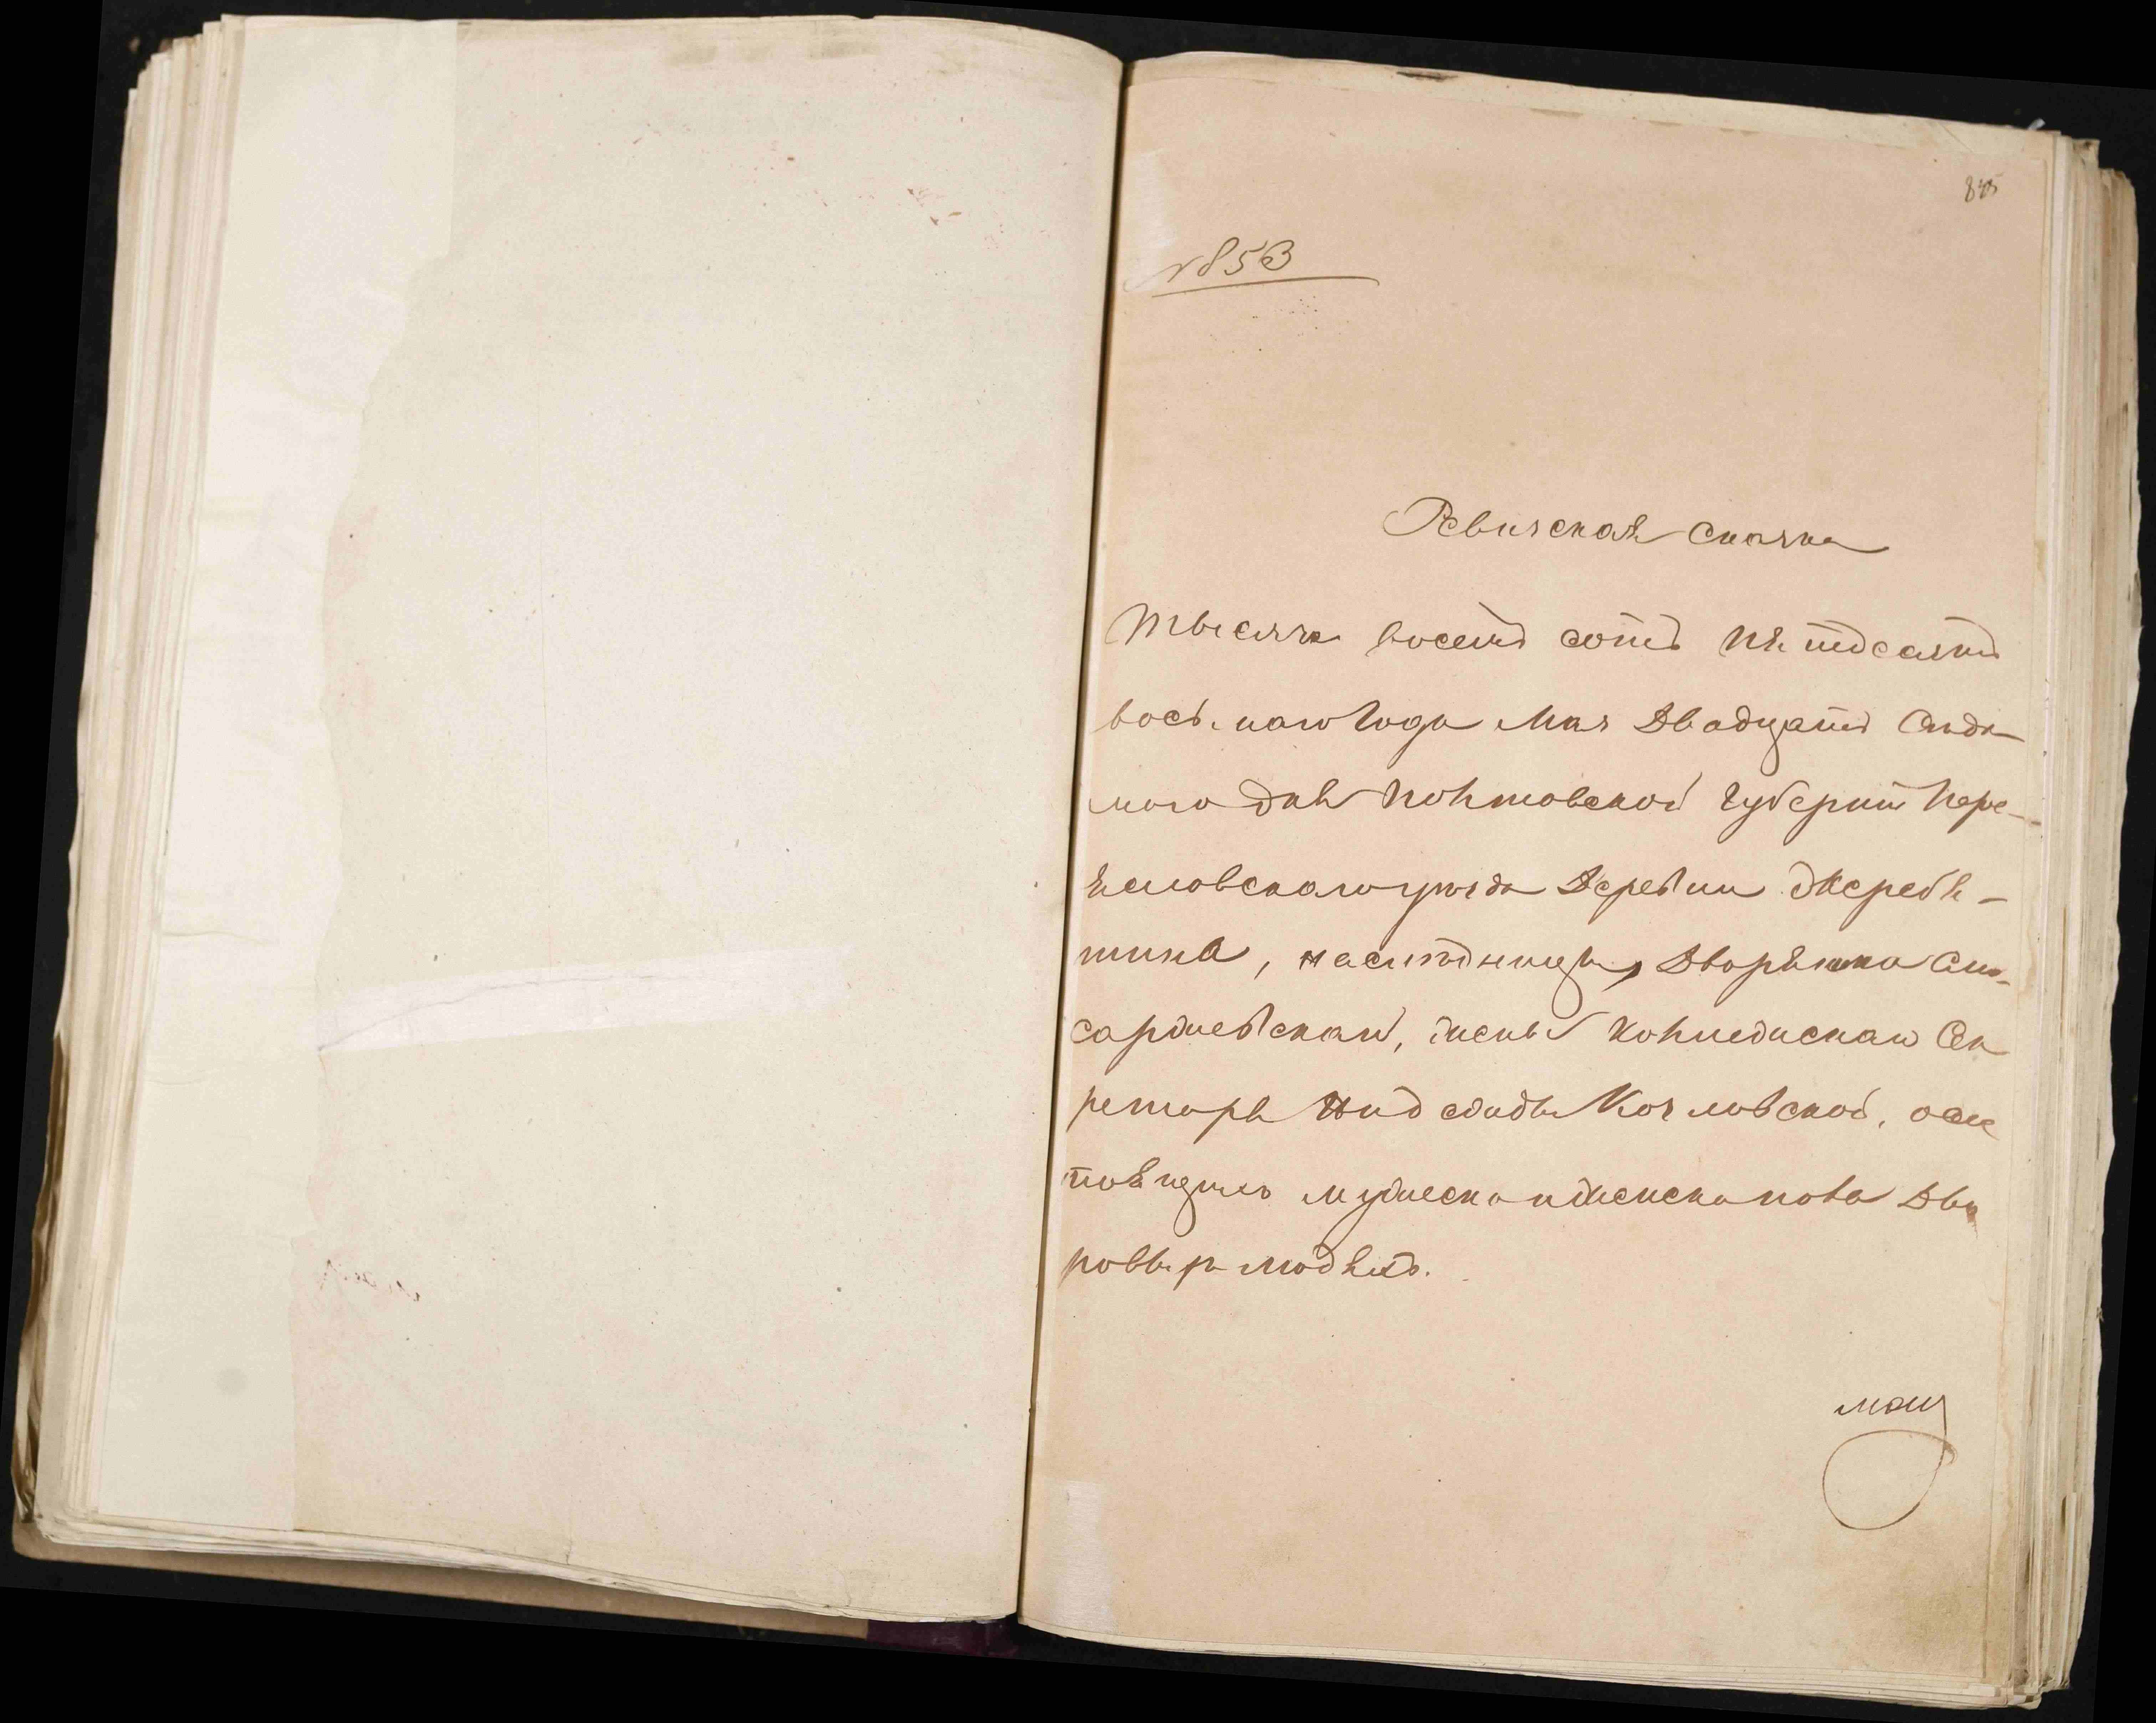 845
№ 853
Ревизская сказка
Тысяча восемь сотъ пятдесятъ
восьмаго Года Мая Двадцать Седь
мого дня Полтавской Губерніи Пере-
яславскаго уезда Деревни Жеребя-
тина, наследницы, Дворянки
жены Колежскаго Сек
ретаря Козловской, о со
стоящихъ мужеска и женска пола Дво
ровыхъ людяхъ.